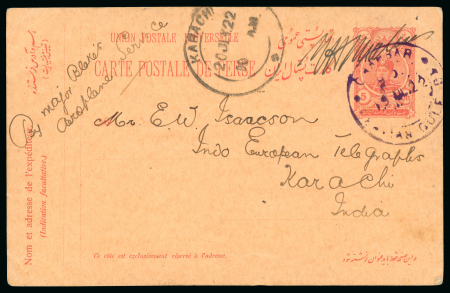 UNION POSTALE UNIVERSELLE
CARTE POSTALE DE PERSE
KARACHI
20 JUL 22
10 AM
By major Blake's
Aeroplane Service
Mr. E. W. Isaacson
Indo European Telegraphs
Karachi
India
Nom et adresse de l'expéditeur
(Indication facultative)
Ce côté est exclusivement réservé à l'adresse.